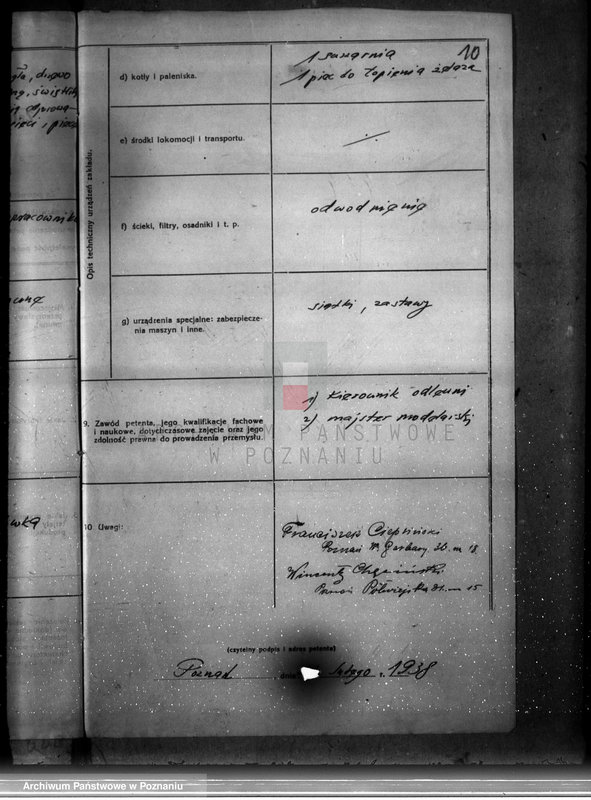 10
1 suwarnia
d) kotły i paleniska.
1 piec do topienia żelaza
e) środki lokomocji i transportu.
Opis techniczny urządzeń zakładu.
odwodnienie
f) ścieki, filtry, osadniki i t. p.
siatki, zastawy
g) urządzenia specjalne: zabezpiecze-
nia maszyn i inne.
1) Kierownik odlewni
9. Zawód petenta, jego kwalifikacje fachowe
i naukowe, dotychczasowe zajęcie oraz jego
zdolność prawna do prowadzenia przemysłu.
2) majster modelarski
PAŃSTWOWE
W POZNANIU
10 Uwagi:
Franciszek
Poznań W. Garbary 30. m 18
Wincenty
Poznań Półwiejska m 15
(czytelny podpis i adres petenta)
Poznań dnia lutego 1938
Archiwum Państwowe w Poznaniu